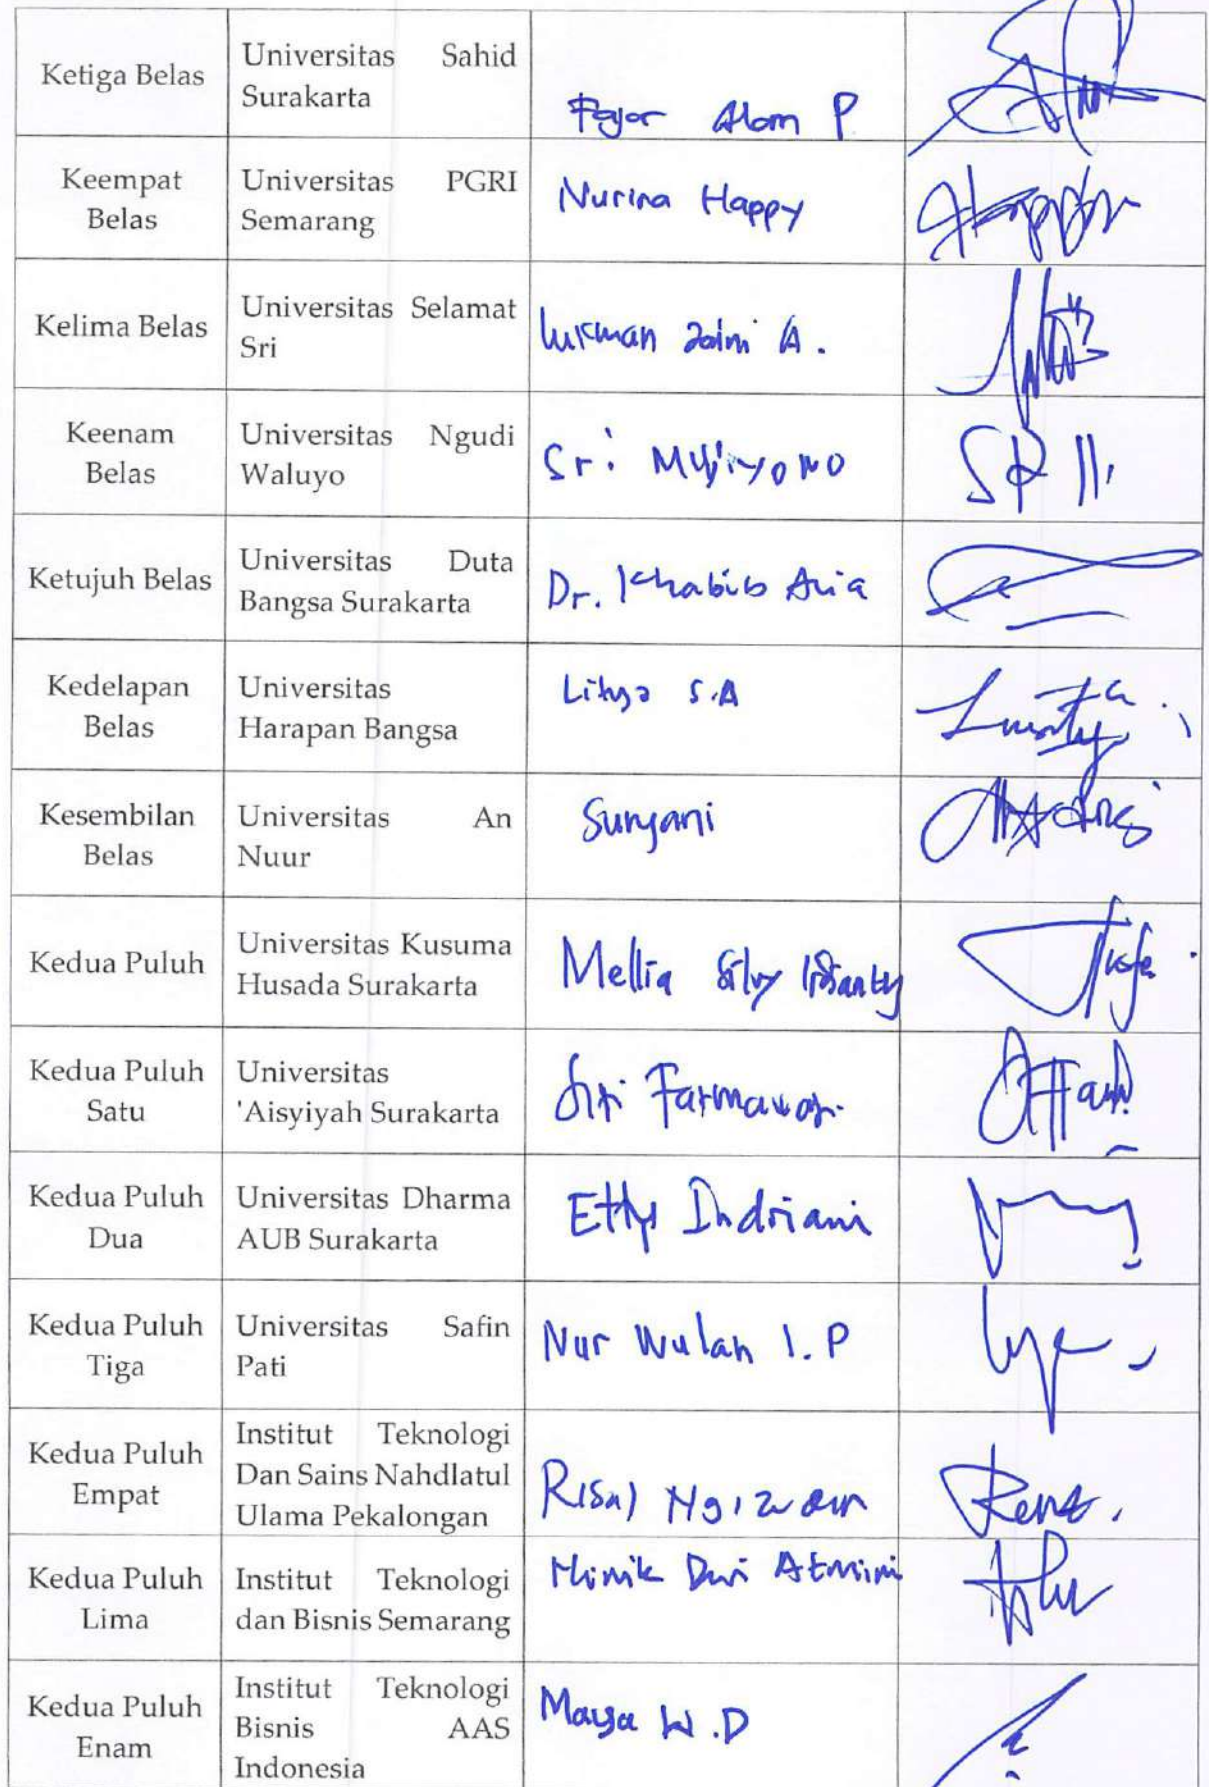 Ketiga Belas
Universitas Sahid
Surakarta
Fajar Alam P
Keempat
Belas
Universitas PGRI
Semarang
Nurina Happy
Kelima Belas
Universitas Selamat
Sri
Lukman Zaini A.
Keenam
Belas
Universitas Ngudi
Waluyo
Sri Mujiyono
SR
Ketujuh Belas
Universitas Duta
Bangsa Surakarta
Dr. Khabib Aria
Kedelapan
Belas
Universitas
Harapan Bangsa
S.A
Kesembilan
Belas
Universitas An
Nuur
Suryani
Kedua Puluh
Universitas Kusuma
Husada Surakarta
Mellia Silvy
Kedua Puluh
Satu
Universitas
'Aisyiyah Surakarta
Siti Farmawati
Kedua Puluh
Dua
Universitas Dharma
AUB Surakarta
Etty Indriani
Kedua Puluh
Tiga
Universitas Safin
Pati
Nur Wulan I. P
Kedua Puluh
Empat
Institut Teknologi
Dan Sains Nahdlatul
Ulama Pekalongan
Risal Ngizudin
Kedua Puluh
Lima
Institut Teknologi
dan Bisnis Semarang
Dwi Atmini
Kedua Puluh
Enam
Institut Teknologi
Bisnis AAS
Indonesia
Maya W.D